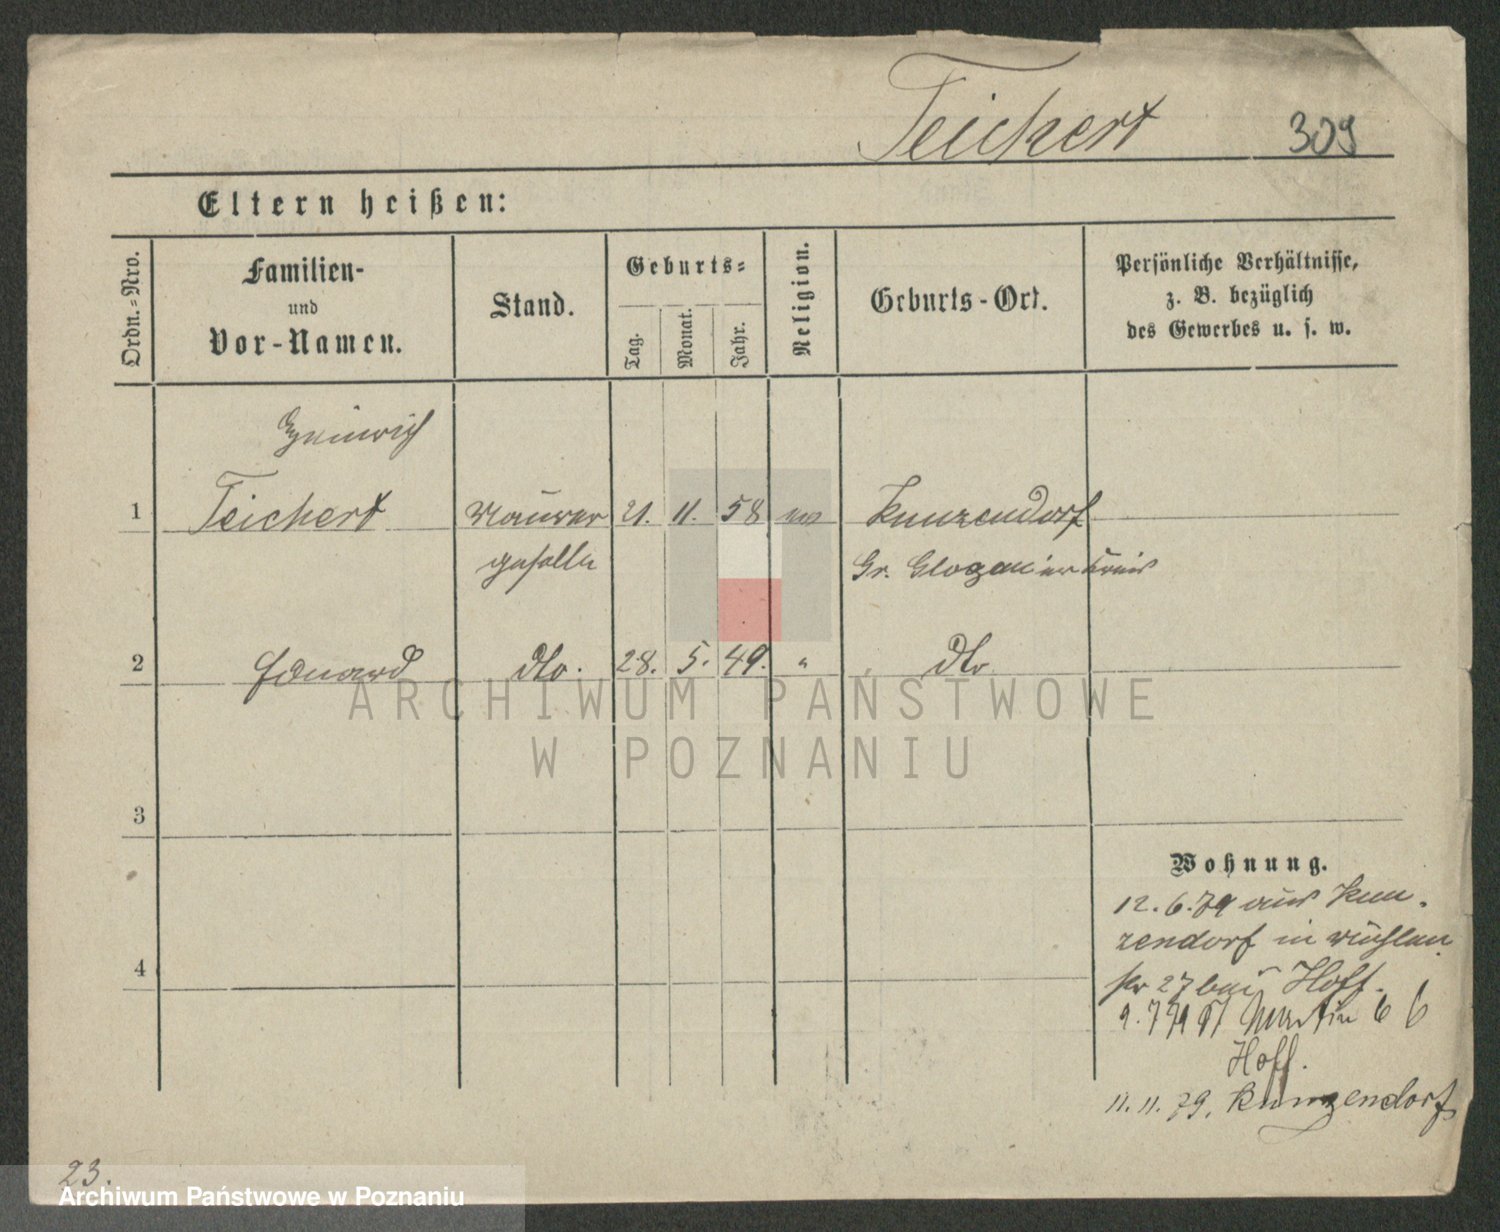 Teichert 309
Eltern heißen:
Ordn.-Nro.
Familien-
und
Vor-Namen.
Stand.
Geburts-
Tag.
Monat.
Jahr.
Religion.
Geburts-Ort.
Persönliche Verhältnisse,
z. B. bezüglich
des Gewerbes u. s. w.
Heinrich
1 Teichert Maurer 21. 11. 58 Kunzendorf
geselle Gr. Glogauer Kreis
2 Eduard dto. 28. 5. 49. " dto
3
4
Wohnung.
12.6.79 aus Kun-
zendorf in Mühlen
str 27 bei Hoff.
9.7 79 St Martin 6 6
Hoff.
11. 11. 79. Kunzendorf
23.
ARCHIWUM PAŃSTWOWE
W POZNANIU
Archiwum Państwowe w Poznaniu